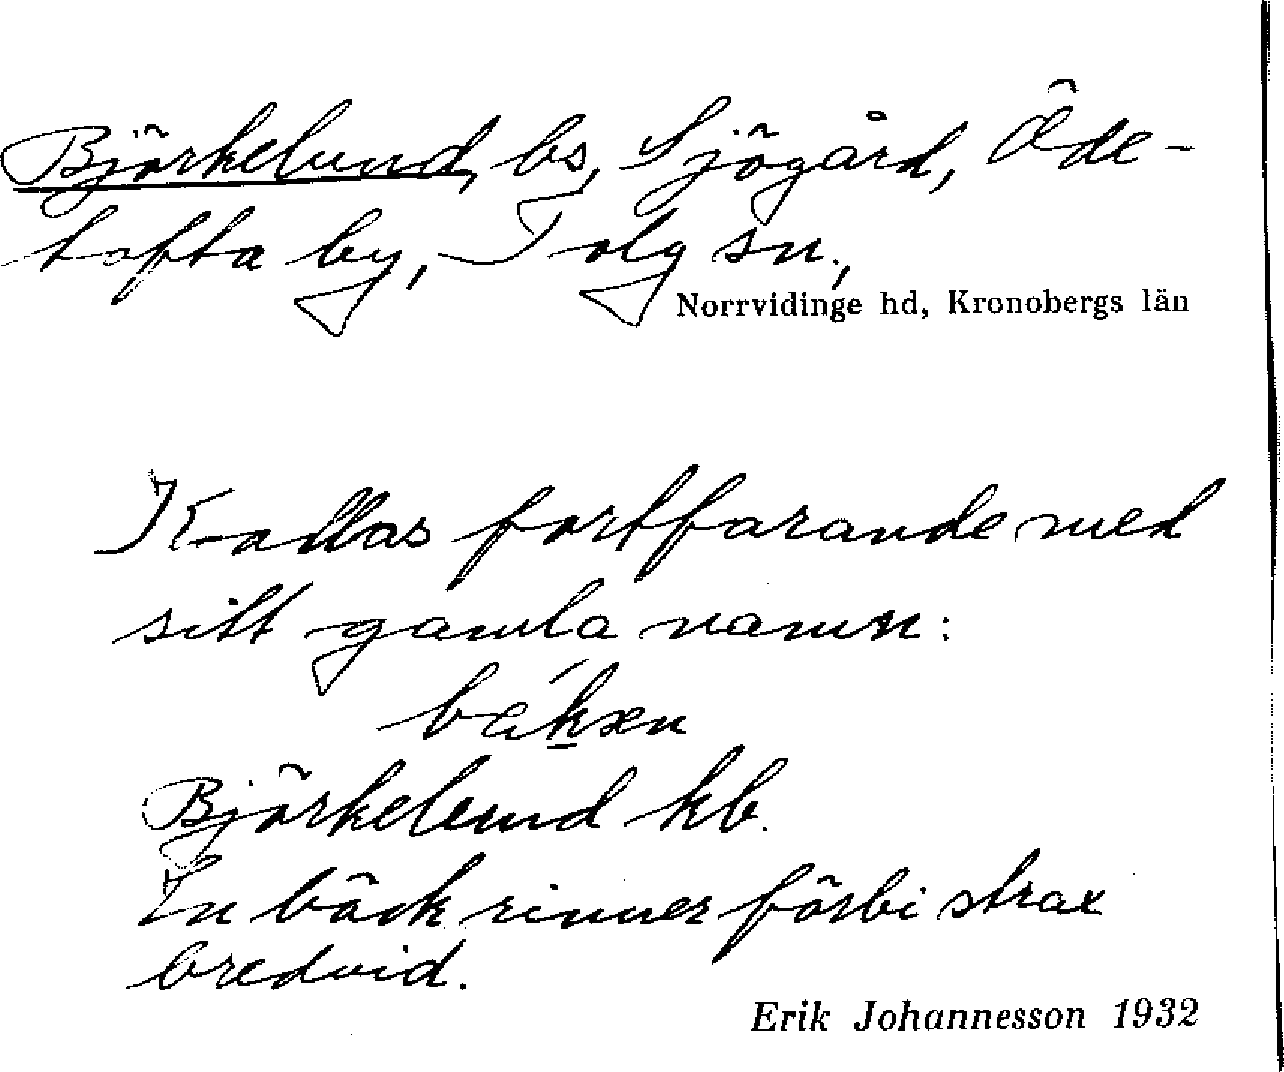 Björkelund, bs, Sjögård, Öde-
tofta by, Tolg sn.,
Norrvidinge hd, Kronobergs län
Kallas fortfarande med
sitt gamla namn:
Björkelund kb.
En bäck rinner förbi strax
bredvid.
Erik Johannesson 1932